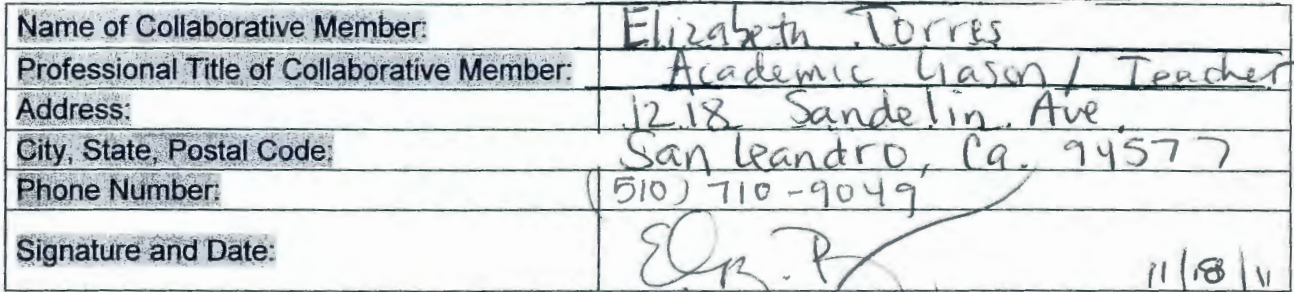 Name of Collaborative Member: Elizabeth Torres
Professional Title of Collaborative Member: Academic Liason / Teacher
Address: 1218 Sandelin Ave.
City, State, Postal Code: San Leandro, Ca. 94577
Phone Number: (510) 710-9049
Signature and Date: 11/18/11